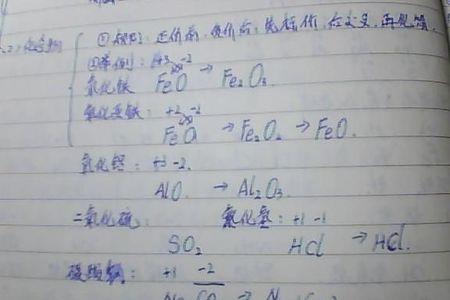 (2)化合物
①规则:正价前,负价后,先标价,后交叉,再见简.
②举例: +3 -2
氧化铁 FeO → Fe₂O₃.
氧化亚铁: +2 -2
FeO → Fe₂O₂ → FeO.
氧化铝: +3 -2.
AlO → Al₂O₃.
二氧化硫: 氯化氢: +1 -1
SO₂ HCl → HCl.
碳酸钠: +1 -2
Na CO → N